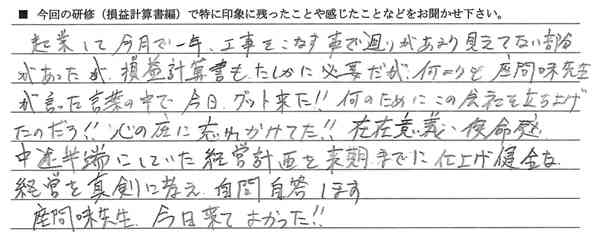 ■ 今回の研修（損益計算書編）で特に印象に残ったことや感じたことなどをお聞かせ下さい。
起業して今月で一年、工事をこなす事で週りがあまり見えてない部分
があったが、損益計算書もたしかに必要だが、何よりも座間味先生
が言った言葉の中で今日、グット来た!! 何のためにこの会社を立ち上げ
たのだろう!! 心の底に忘れかけてた!! 存在意義、使命感、
中途半端にしていた経営計画を来期までに仕上げ健全な
経営を真剣に考え、自問自答します
座間味先生、今日来てよかった!!